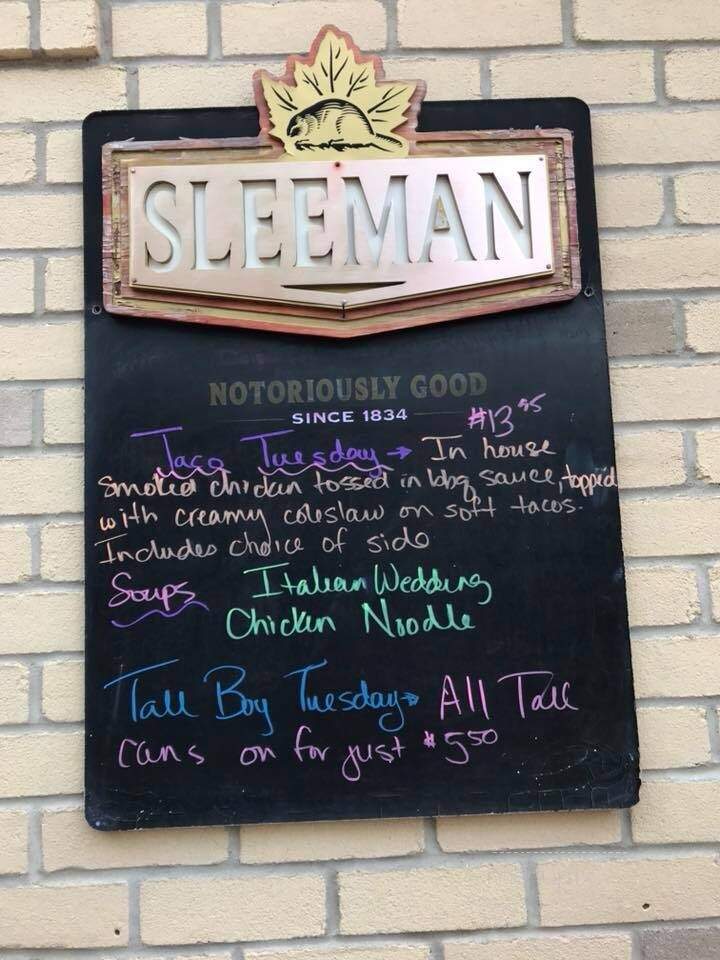 SLEEMAN
NOTORIOUSLY GOOD
SINCE 1834
$13.95
Taco Tuesday → In house
Smoked chicken tossed in bbq sauce, topped
with creamy coleslaw on soft tacos.
Includes choice of side
Soups Italian Wedding
Chicken Noodle
Tall Boy Tuesday → All Tall
cans on for just $5.50